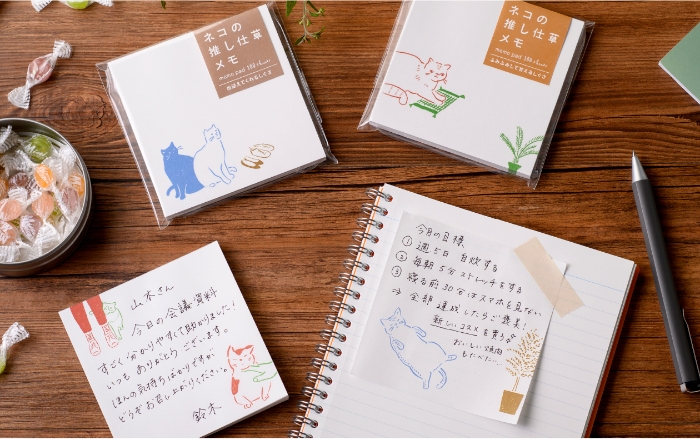 ネコの
推し仕草
メモ
ネコの
推し仕草
メモ
山本さん
今日の会議資料
すごく分かりやすくて助かりました!
いつもありがとうございます。
ほんの気持ちばかりですが
どうぞお召し上がりください。
鈴木
今月の目標
① 週5日 自炊する
② 毎朝 5分ストレッチをする
③ 寝る前30分はスマホを見ない
⇒ 全部 達成したらご褒美!
新しいコスメを買うか
おいしい焼肉
もたべたい…